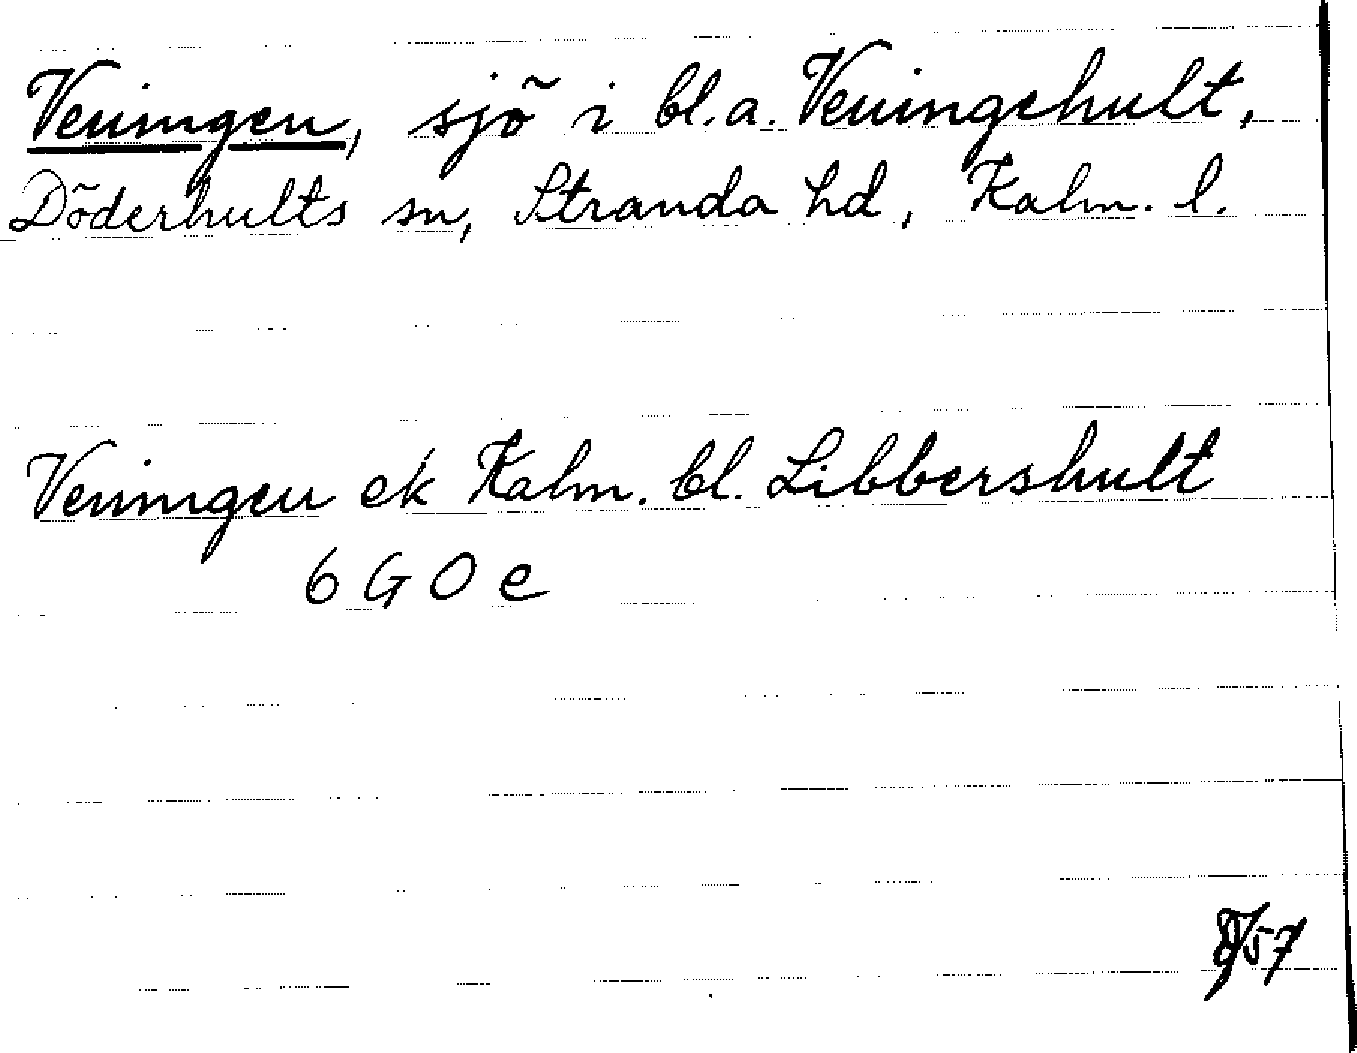 Veningen, sjö i bl.a. Veningehult,
Döderhults sn, Stranda hd, Kalm. l.
Veningen ek Kalm. bl. Libbershult
6 G O e
57